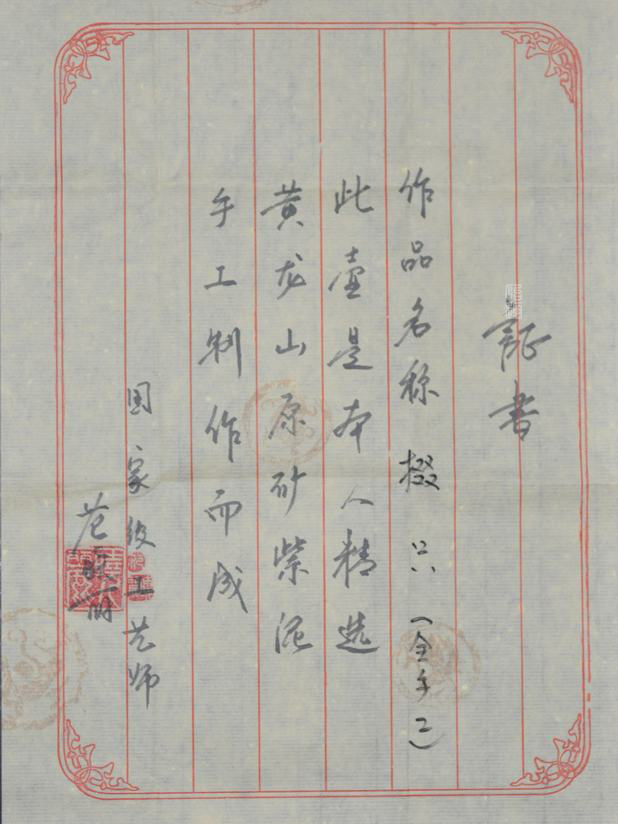 証书
作品名称 掇只（全手工）
此壶是本人精选
黄龙山原砂紫泥
手工制作而成
国家级工艺师
范